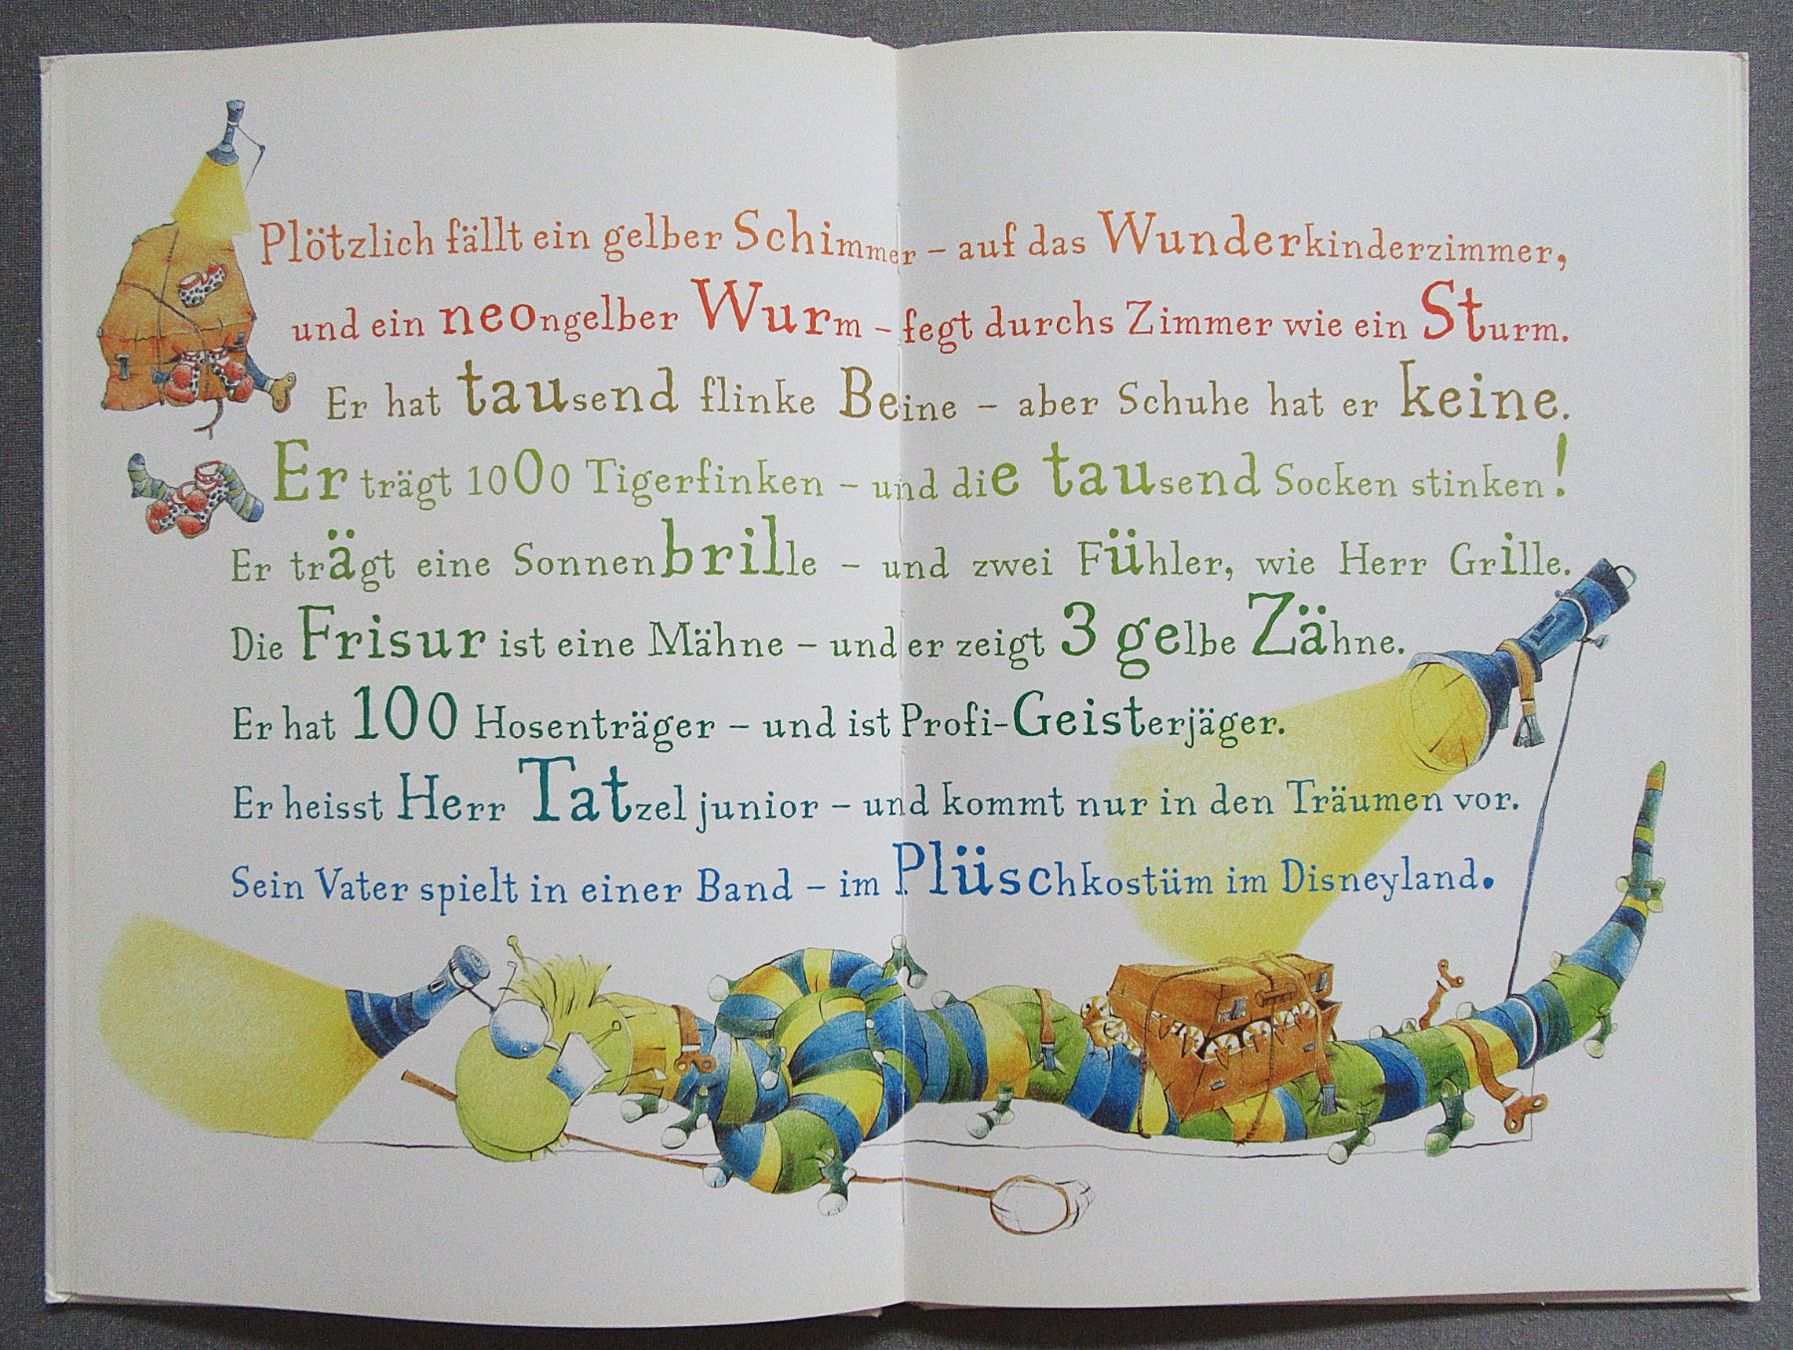 Plötzlich fällt ein gelber Schimmer – auf das Wunderkinderzimmer,
und ein neongelber Wurm – fegt durchs Zimmer wie ein Sturm.
Er hat tausend flinke Beine – aber Schuhe hat er keine.
Er trägt 1000 Tigerfinken – und die tausend Socken stinken!
Er trägt eine Sonnenbrille – und zwei Fühler, wie Herr Grille.
Die Frisur ist eine Mähne – und er zeigt 3 gelbe Zähne.
Er hat 100 Hosenträger – und ist Profi-Geisterjäger.
Er heisst Herr Tatzel junior – und kommt nur in den Träumen vor.
Sein Vater spielt in einer Band – im Plüschkostüm im Disneyland.